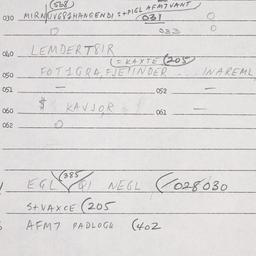 (568)
030 MIRNJV681HANGENDI S+PIEL AFM7VANT
(031 0
0 033 0
040 LEMDERT8IR
(= KAXTE (205
050 FOT1GRA, FJETINDER ... INAREML
051 — 052 —
060 $ KAVJOR 061 —
062 0
(385
EGL QI NEGL (/028030
S+VAXCE (205
AFM7 PADLOGG (402